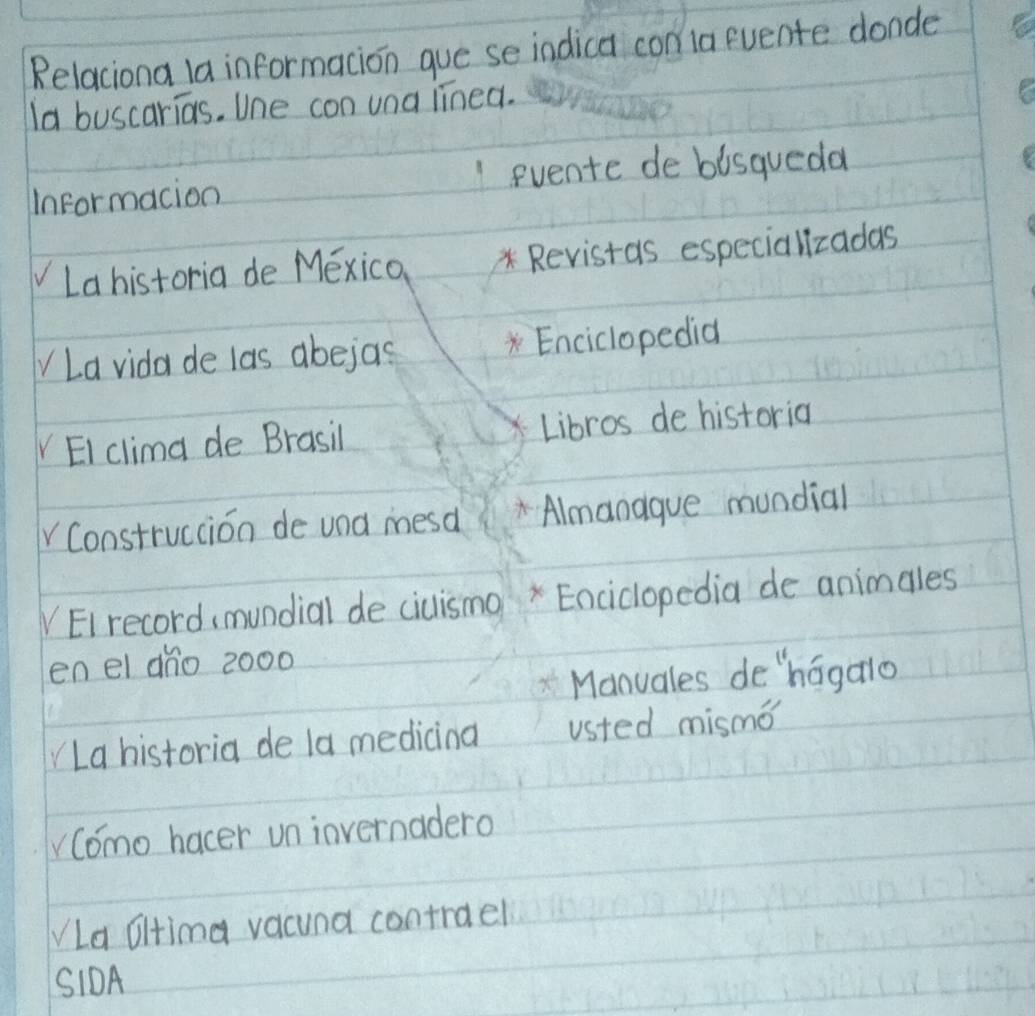 Relaciona la información que se indica con la fuente donde
la buscarías. Une con una línea.
Informacion
fuente de búsqueda
La historia de México
* Revistas especializadas
La vida de las abejas
* Enciclopedia
El clima de Brasil
* Libros de historia
Construcción de una mesa
* Almanaque mundial
El record mundial de ciclismo
* Enciclopedia de animales
en el año 2000
* Manuales de "hágalo
usted mismo"
La historia de la medicina
Cómo hacer un invernadero
La última vacuna contra el
SIDA